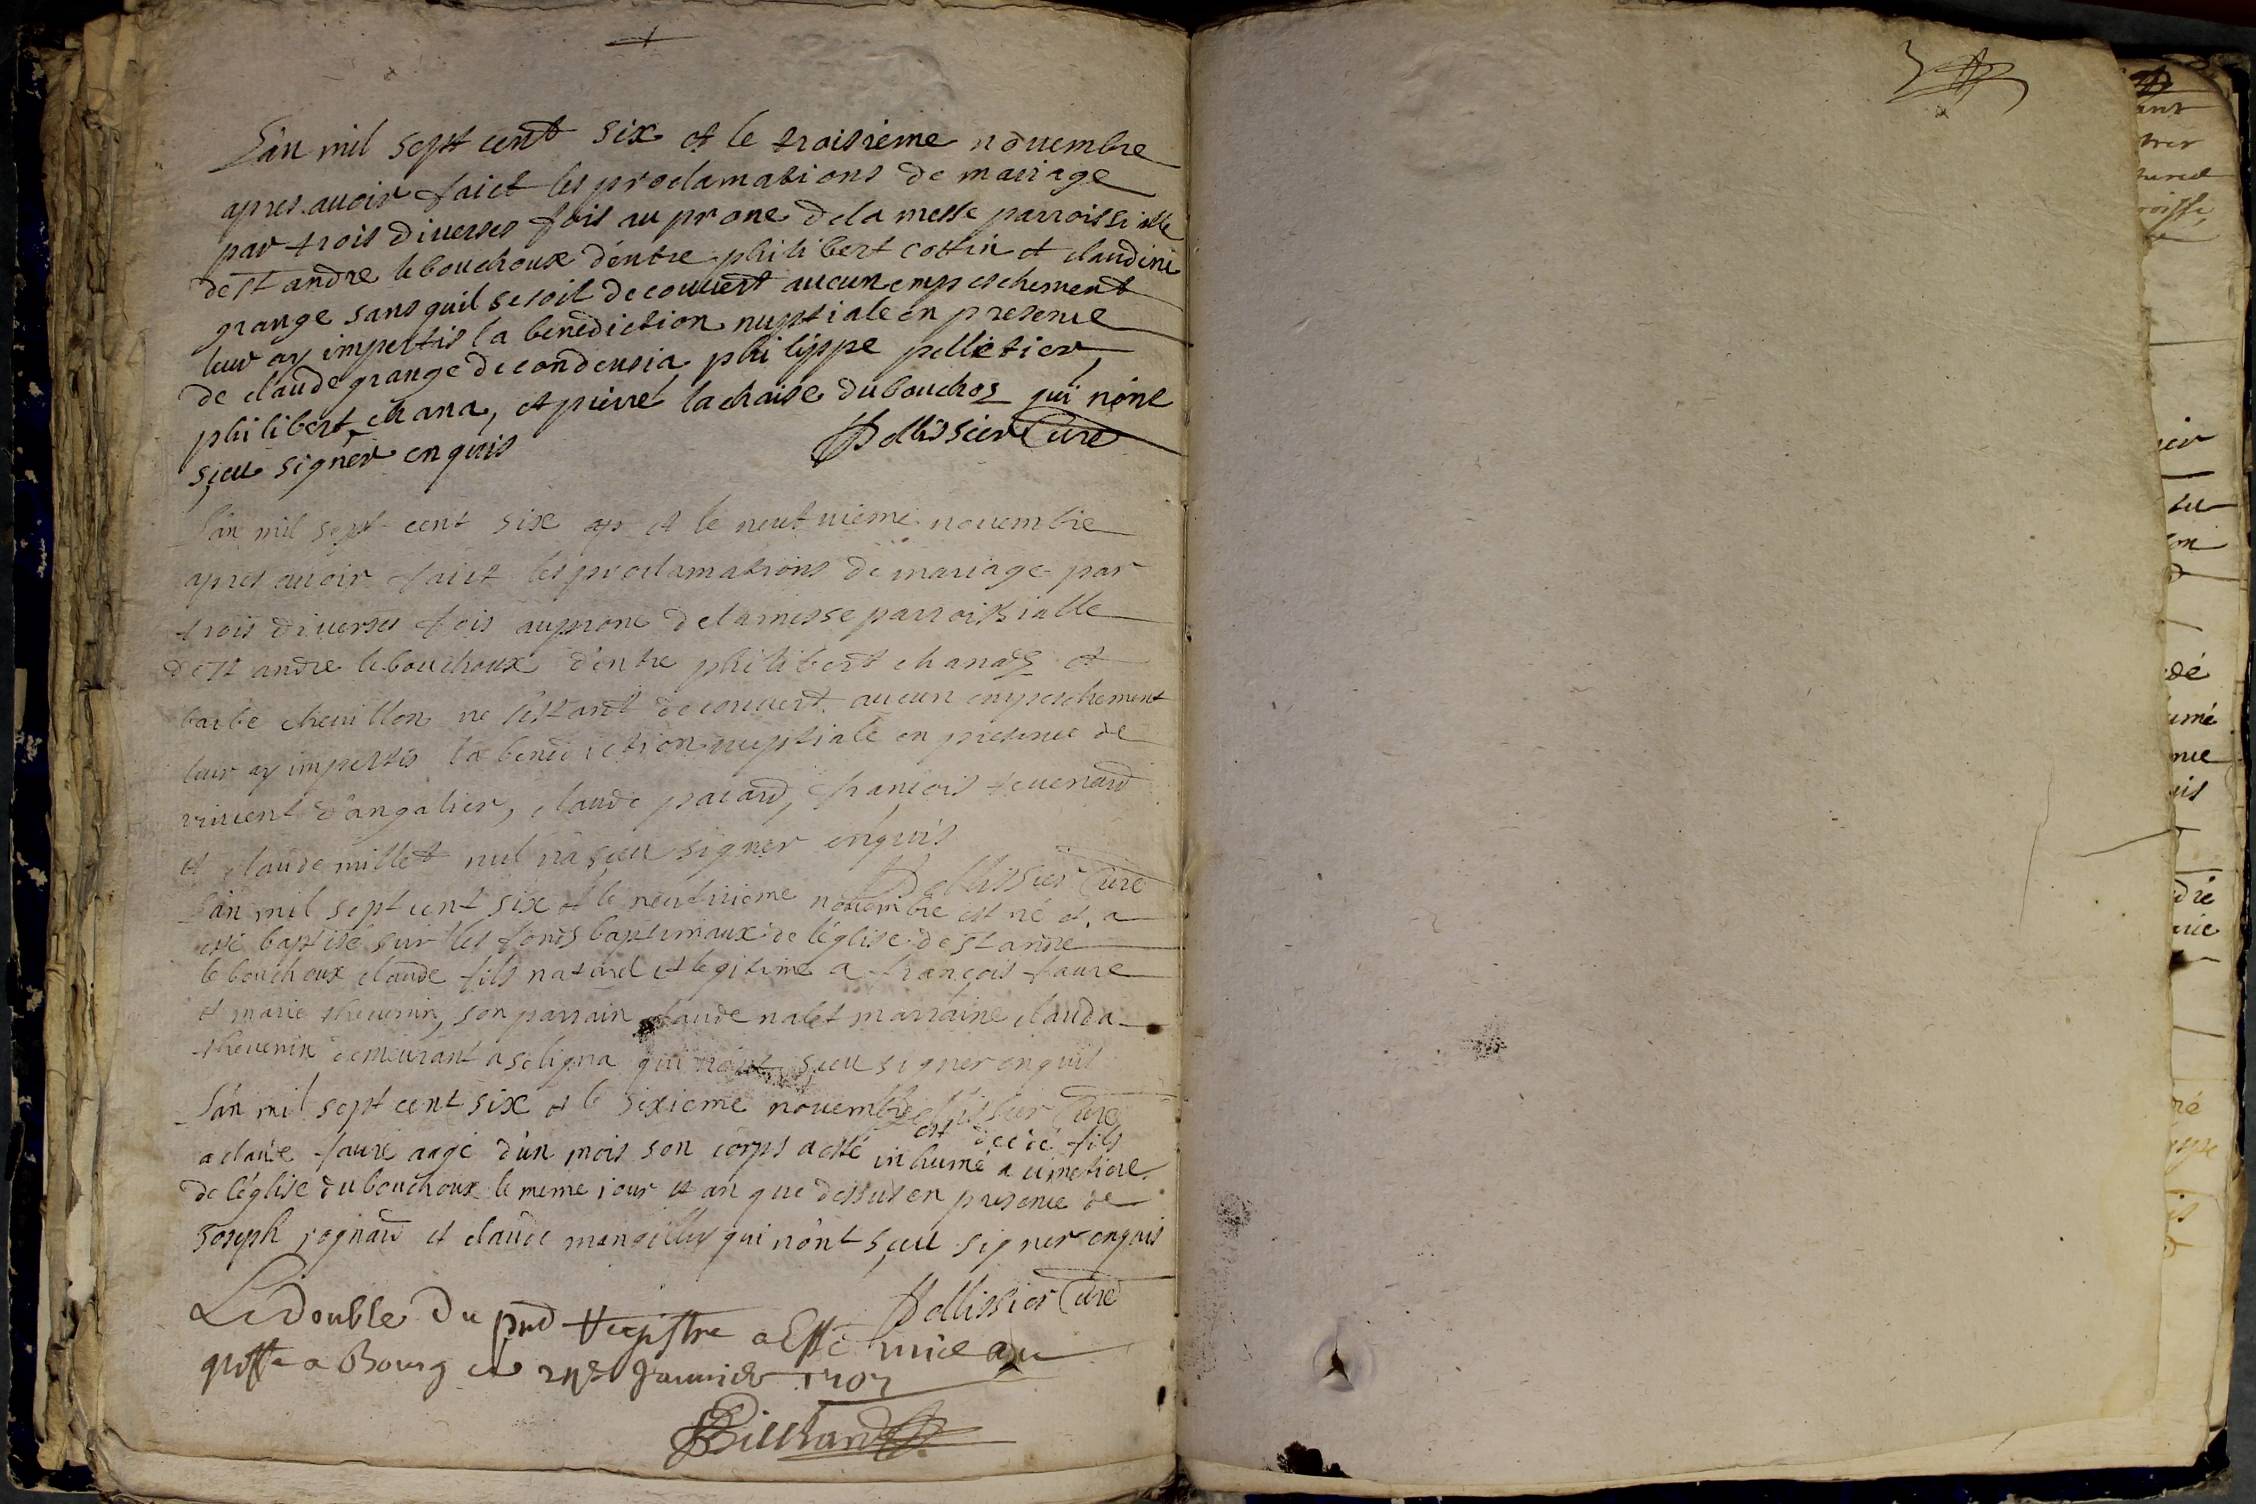 L'an mil sept cent six et le troisieme novembre
apres avoir faict les proclamations de mariage
par trois diverses fois au prone de la messe parroissialle
de st andre le bouchoux d'entre philibert cottin et claudine
grange sans quil se soit decouvert aucun empeschement
leur ay impertis la benediction nuptiale en presence
de claude grange de condeusia philippe pelletier,
philibert chana, et pierre lachaise du bouchoz qui n'ont
sçeu signer enquis Pellissier Curé
L'an mil sept cent six et le neufvieme novembre
apres avoir faict les proclamations de mariage par
trois diverses fois au prone de la messe parroissialle
de st andre le bouchoux d'entre philibert chana et
barbe chevillon ne s'estant decouvert aucun empeschement
leur ay impertis la benediction nuptiale en presence de
vincent d'angalier, claude pacard, françois tevenard
et claude millet nul n'a sçeu signer enquis
Pellissier Curé
L'an mil sept cent six et le neufvieme novembre est né et a
esté baptisé sur les fonds baptismaux de l'église de st andre
le bouchoux claude fils naturel et legitime a françois faure
et marie thevenin, son parrain claude nalet marraine clauda
thevenin demeurant a seligna qui n'ont sçeu signer enquis
Pellissier Curé
L'an mil sept cent six et le sixieme novembre est decedé fils
a claude faure aagé d'un mois son corps a esté inhumé a cimetiere
de l'église du bouchoux le meme jour et an que dessus en presence de
Joseph rognard et claude mangillier qui n'ont sçeu signer enquis
Pellissier Curé
Le double du pnt Registre a Esté mice au
greffe a Bourg ce janvier 1707